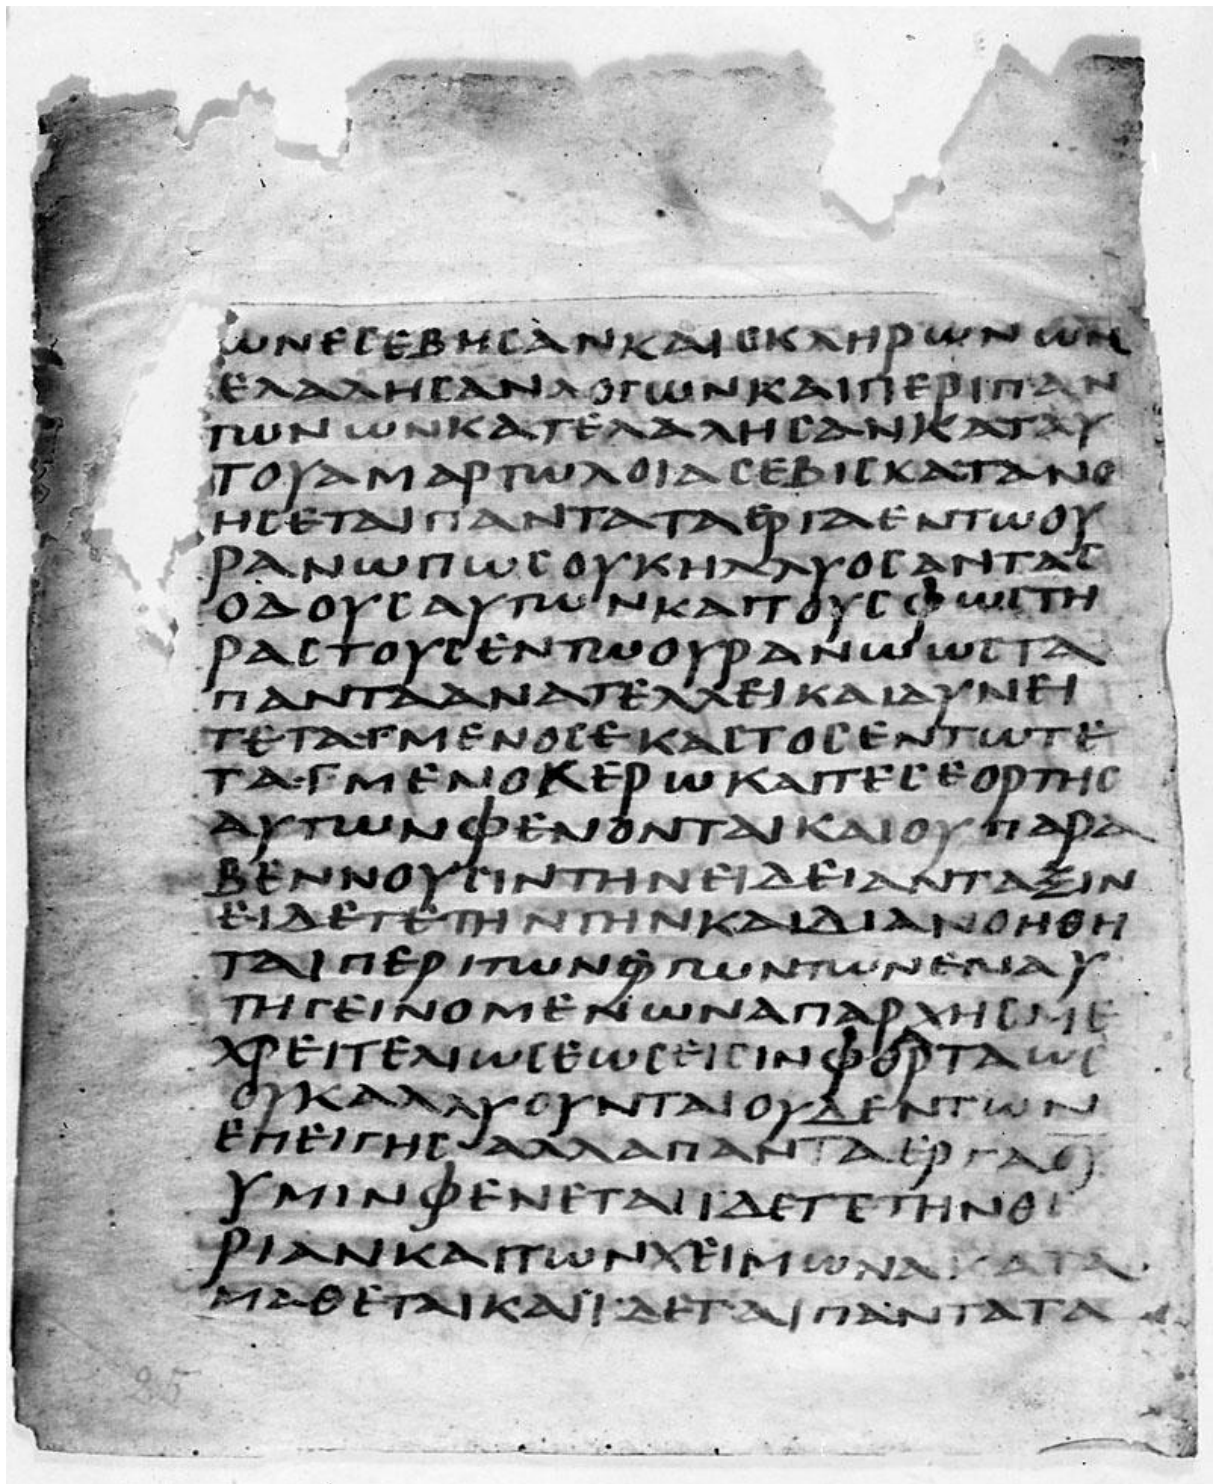 ΩΝΕϹΕΒΗϹΑΝΚΑΙϹΚΛΗΡΩΝΩΝ
ΕΛΑΛΗϹΑΝΛΟΓΩΝΚΑΙΠΕΡΙΠΑΝ
ΤΩΝΩΝΚΑΤΕΛΑΛΗϹΑΝΚΑΤΑΥ
ΤΟΥΑΜΑΡΤΩΛΟΙΑϹΕΒΙϹΚΑΤΑΝΟ
ΗϹΕΤΑΙΠΑΝΤΑΤΑΕΡΓΑΕΝΤΩΟΥ
ΡΑΝΩΠΩϹΟΥΚΗΛΛΥΟϹΑΝΤΑϹ
ΟΔΟΥϹΑΥΤΩΝΚΑΙΤΟΥϹΦΩϹΤΗ
ΡΑϹΤΟΥϹΕΝΤΩΟΥΡΑΝΩΩϹΤΑ
ΠΑΝΤΑΑΝΑΤΕΛΛΕΙΚΑΙΔΥΝΕΙ
ΤΕΤΑΓΜΕΝΟϹΕΚΑϹΤΟϹΕΝΤΩΤΕ
ΤΑΓΜΕΝΟΚΕΡΩΚΑΙΤΕϹΕΟΡΤΗϹ
ΑΥΤΩΝΦΕΝΟΝΤΑΙΚΑΙΟΥΠΑΡΑ
ΒΕΝΝΟΥϹΙΝΤΗΝΕΙΔΕΙΑΝΤΑΞΙΝ
ΕΙΔΕΤΕΤΗΝΤΗΝΚΑΙΔΙΑΝΟΗΘΗ
ΤΑΙΠΕΡΙΤΩΝΕΡΓΩΝΤΩΝΕΝΑΥ
ΤΗΓΕΙΝΟΜΕΝΩΝΑΠΑΡΧΗϹΜΕ
ΧΡΕΙΤΕΛΙΩϹΕΩϹΕΙϹΙΝΦΘΟΡΤΑΩϹ
ΟΥΚΑΛΛΥΟΥΝΤΑΙΟΥΔΕΝΤΩΝ
ΕΠΕΙΓΗϹΑΛΛΑΠΑΝΤΑΕΡΓΑΘΥ
ΥΜΙΝΦΕΝΕΤΑΙΙΔΕΤΕΤΗΝΘΕ
ΡΙΑΝΚΑΙΤΩΝΧΕΙΜΩΝΑΚΑΤΑ
ΜΑΘΕΤΑΙΚΑΙΙΔΕΤΑΙΠΑΝΤΑΤΑ
25